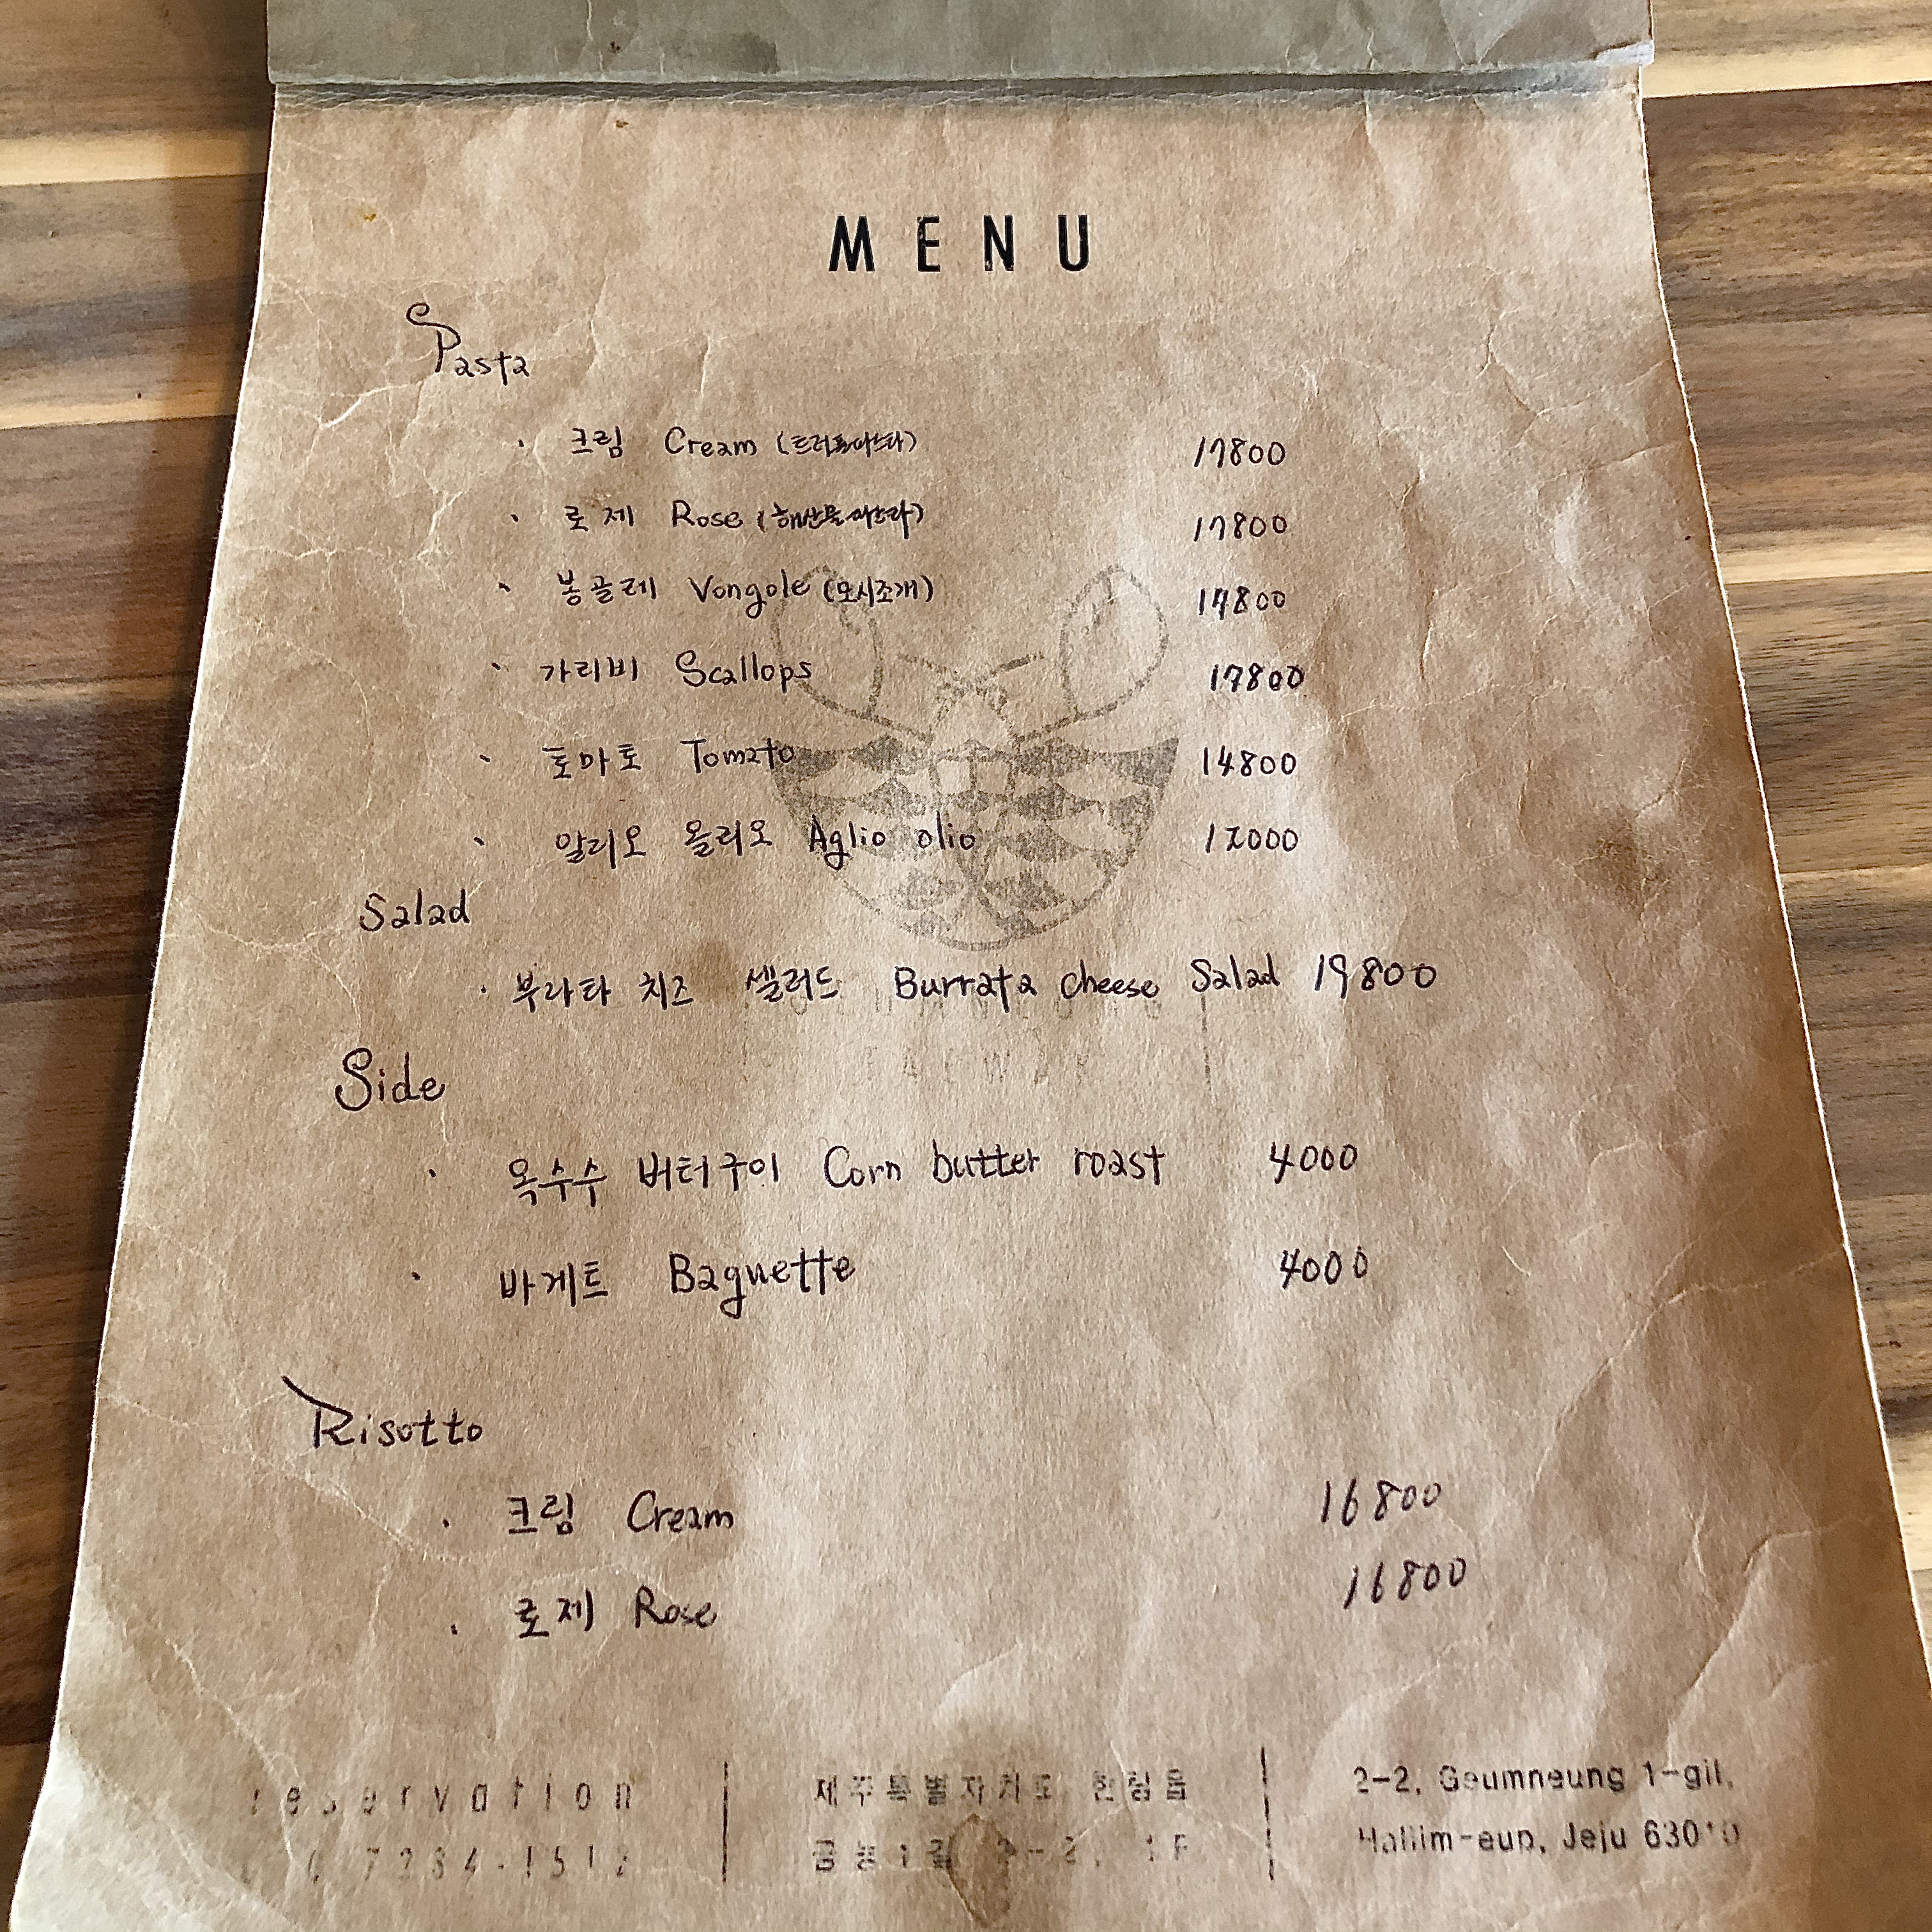 MENU
Pasta
· 크림 Cream (트러플파스타) 17800
· 로제 Rose (해산물파스타) 17800
· 봉골레 Vongole (모시조개) 17800
· 가리비 Scallops 17800
· 토마토 Tomato 14800
· 알리오 올리오 Aglio olio 12000
Salad
· 부라타 치즈 샐러드 Burrata cheese Salad 19800
Side
· 옥수수 버터구이 Corn butter roast 4000
· 바게트 Baguette 4000
Risotto
· 크림 Cream 16800
· 로제 Rose 16800
reservation
제주특별자치도 한림읍
금능1길 2-2, 1F
2-2, Geumneung 1-gil,
Hallim-eup, Jeju